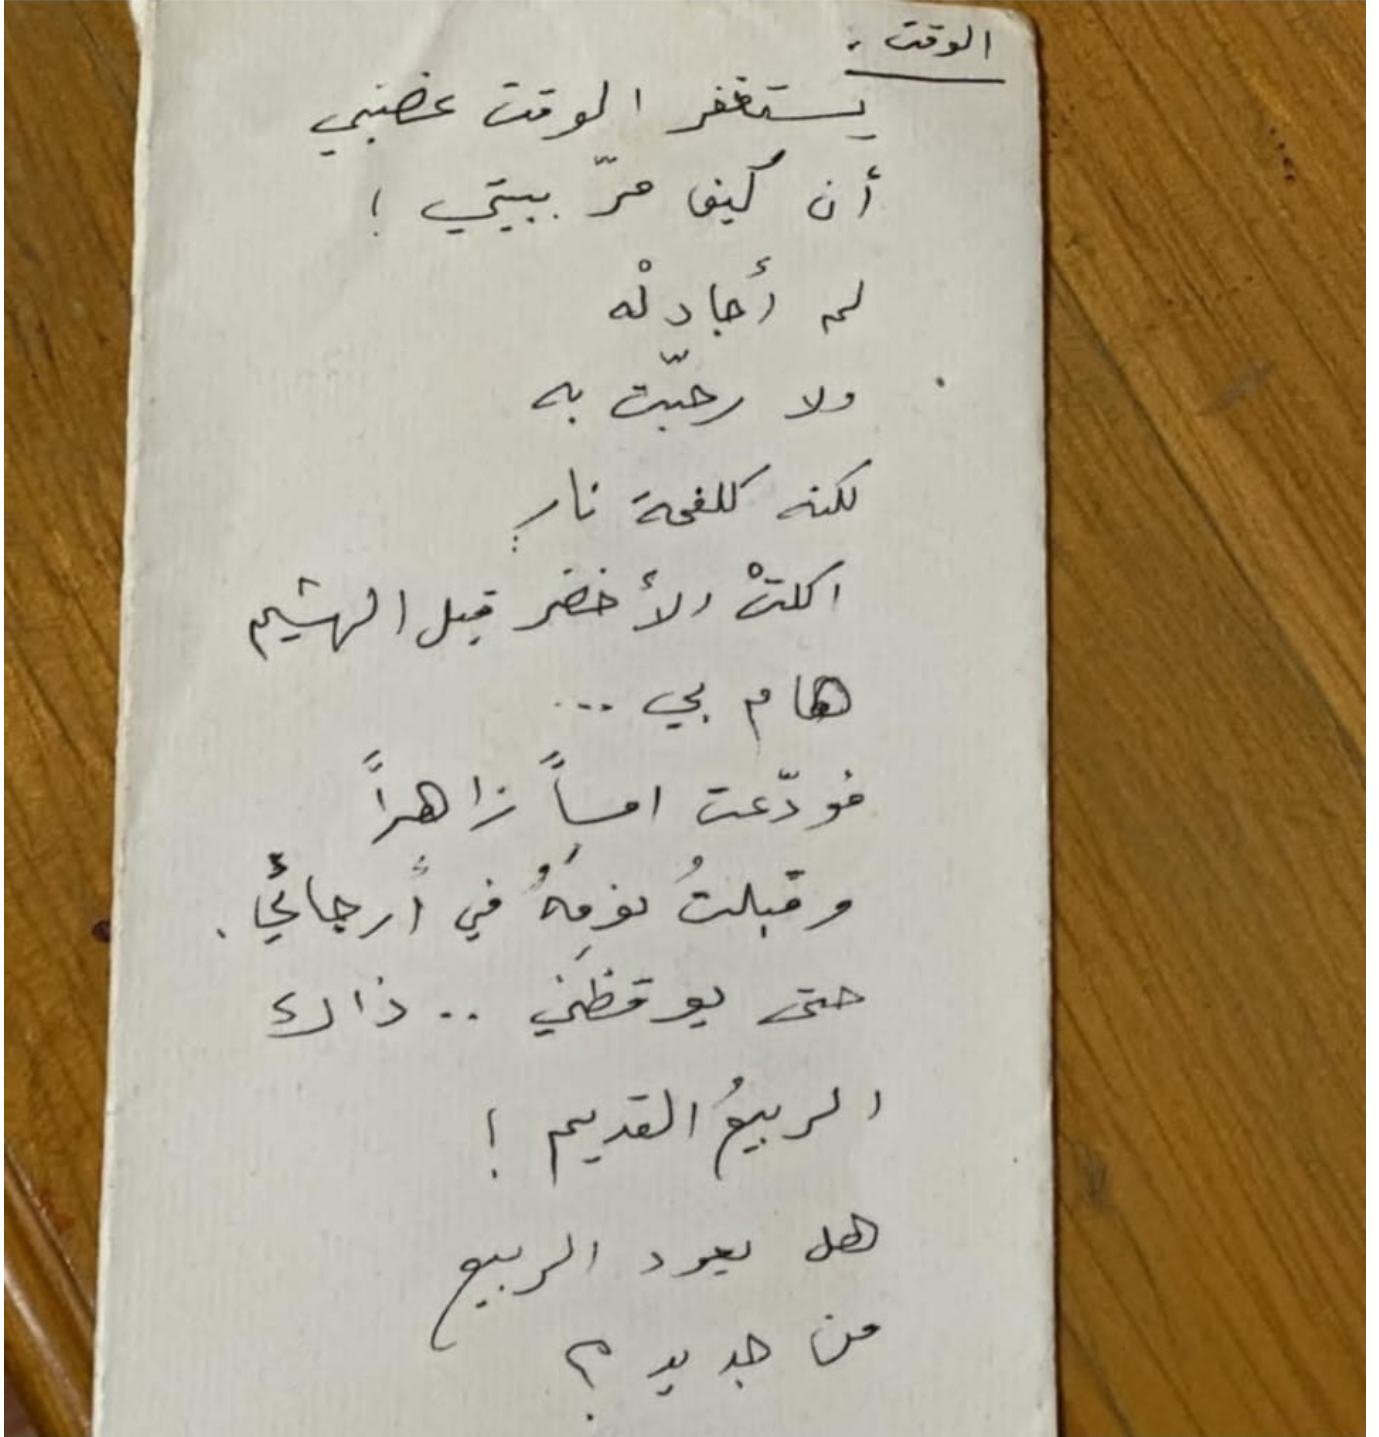 الوقت :
يستغفر الوقت غضبي
أن كيف مرّ ببيتي !
لم أجادلْه
ولا رحبّت به
لكنه كلفحة نارٍ
اكلتْ الأخضر قبل الهشيم
هام بي ...
فودّعت امساً زاهراً
وقبلتُ نومَهُ في أرجائي .
حتى يوقظَني .. ذاك
الربيعُ القديم !
هل يعود الربيع
من جديد ؟